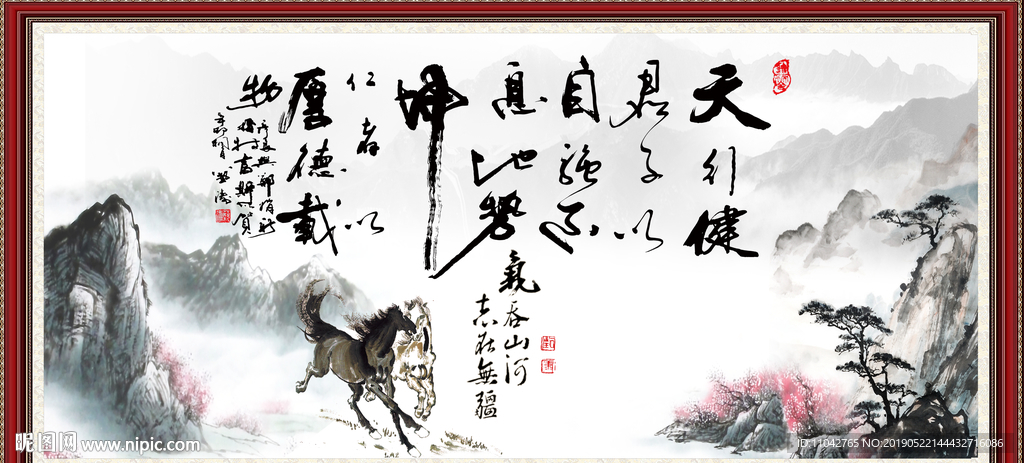 天行健
君子以
自強不
息地勢
坤
仁者以
厚德載
物
氣吞山河
志在無疆
昵图网 www.nipic.com
ID:11042765 NO:20190522144432716086